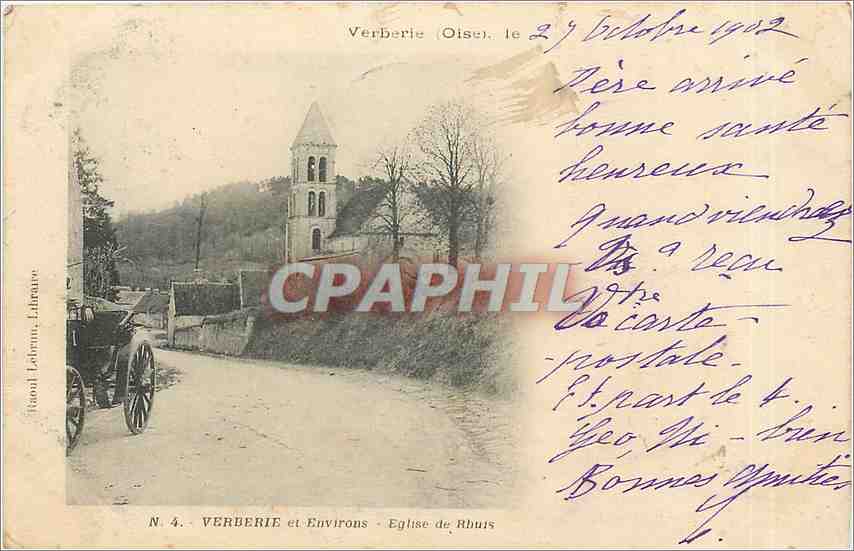 Verberie (Oise), le 27 Octobre 1902
Père arrivé
bonne santé
heureux
Quand viendrez
Vs a reçu
Vtre
carte-
-postale-
Et part le 4.
Geo, - bien
Bonnes amitiés
CPAPHIL
Raoul Lebrun, Libraire
N. 4. - VERBERIE et Environs - Eglise de Rhuis